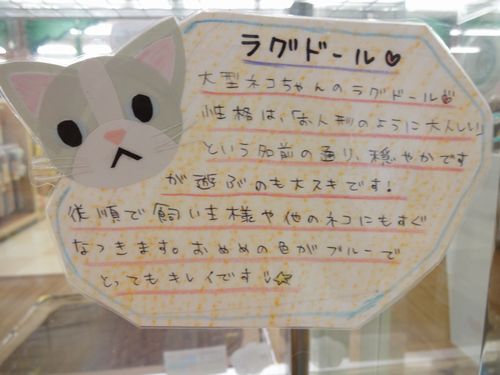 ラグドール♥
大型ネコちゃんのラグドール♡
性格は、「お人形のように大人しい」
という名前の通り、穏やかです
が遊ぶのも大スキです!
従順で飼い主様や他のネコにもすぐ
なつきます。おめめの色がブルーで
とってもキレイです!☆